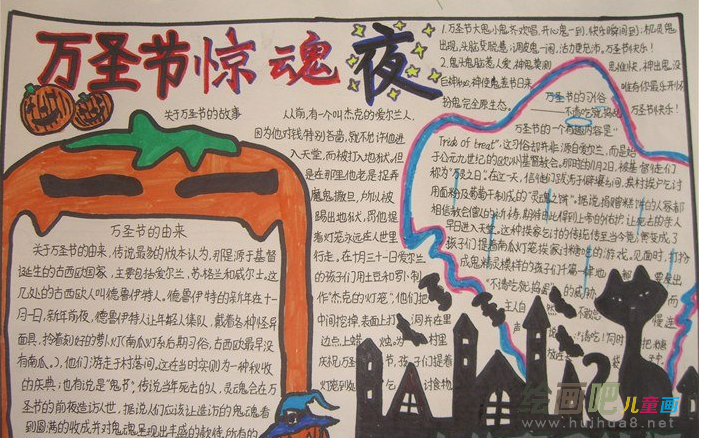 万圣节惊魂夜
1.万圣节大鬼小鬼齐欢唱.开心鬼一到,快乐瞬间到;机灵鬼
出现,头脑变聪慧;调皮鬼一闹,活力更充沛.万圣节快乐!
关于万圣节的故事
从前,有一个叫杰克的爱尔兰人.
因为他对钱特别吝啬,就不允许他进
入天堂,而被打入地狱.但
是在那里他老是捉弄
魔鬼撒旦,所以被
踢出地狱,罚他提
着灯笼永远在人世里
行走.在十月三十一日爱尔兰
的孩子们用土豆和罗卜制
作"杰克的灯笼".他们把
中间挖掉,表面上打
洞并在里
边点上蜡
烛.为
村里
庆祝万圣节
孩子们提着
讨食物
万圣节的由来
关于万圣节的由来,传说最多的版本认为,那是源于基督
诞生前的古西欧国家,主要包括爱尔兰、苏格兰和威尔士.这
几处的古西欧人叫德鲁伊特人.德鲁伊特的新年在十一
月一日,新年前夜,德鲁伊特人让年轻人集队,戴着各种怪异
面具,拎着刻好的萝卜灯(南瓜灯系后期习俗,古西欧最早没
有南瓜。),他们游走于村落间.这在当时实则为一种秋收
的庆典;也有说是"鬼节",传说当年死去的人,灵魂会在万
圣节的前夜造访人世,据说人们应该让造访的鬼魂看
到圆满的收成并对鬼魂呈现出丰盛的款待.所有的
万圣节的习俗
——不请吃就捣乱
万圣节快乐!
万圣节的一个有趣内容是"
Trick of treat",这习俗却并非源自爱尔兰,而是始
于公元九世纪的欧洲基督教会.那时的11月2日,被基督徒们
称为"万灵之日".在这一天,信徒们跋涉于僻壤之间,挨村挨户乞讨
用面粉及葡萄干制成的"灵魂之饼".据说捐赠糕饼的人家都
相信教会僧人的祈祷,期待由此得到上帝的保佑,让死去的亲人
早日进入天堂.这种挨家乞讨的传统传至当今竟演变成了
孩子们提着南瓜灯笼挨家讨糖吃的游戏.见面时,打扮
成鬼精灵模样的孩子们
"不请吃就捣乱"的威胁
主人自
不敢
声
请吃!
绘画吧 儿童画
www.huihua8.net